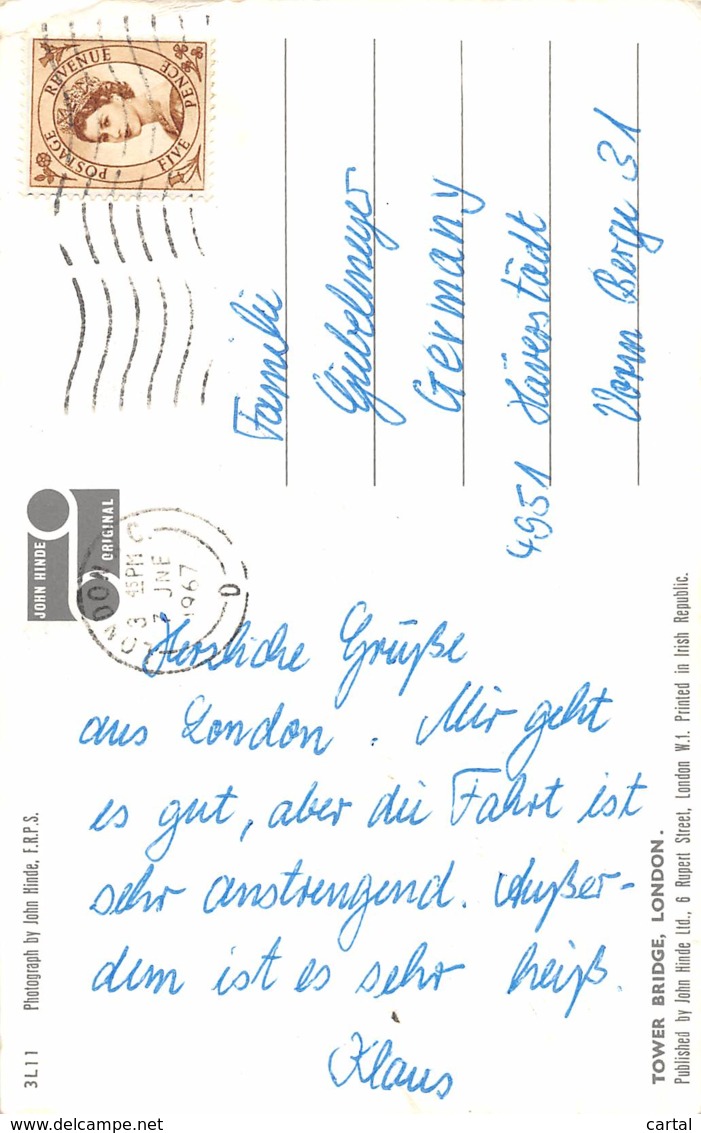 POSTAGE REVENUE
FIVE PENCE
Familie
Giebelmeyer
Germany
4951 Häverstädt
Vorm Berge 31
JOHN HINDE
ORIGINAL
LONDON
3 45 PM
JNE
1967
Herzliche Grüße
aus London. Mir geht
es gut, aber die Fahrt ist
sehr anstrengend. Außer-
dem ist es sehr heiß.
Klaus
3L11
Photograph by John Hinde, F.R.P.S.
TOWER BRIDGE, LONDON.
Published by John Hinde Ltd., 6 Rupert Street, London W.1. Printed in Irish Republic.
delcampe.net
cartal